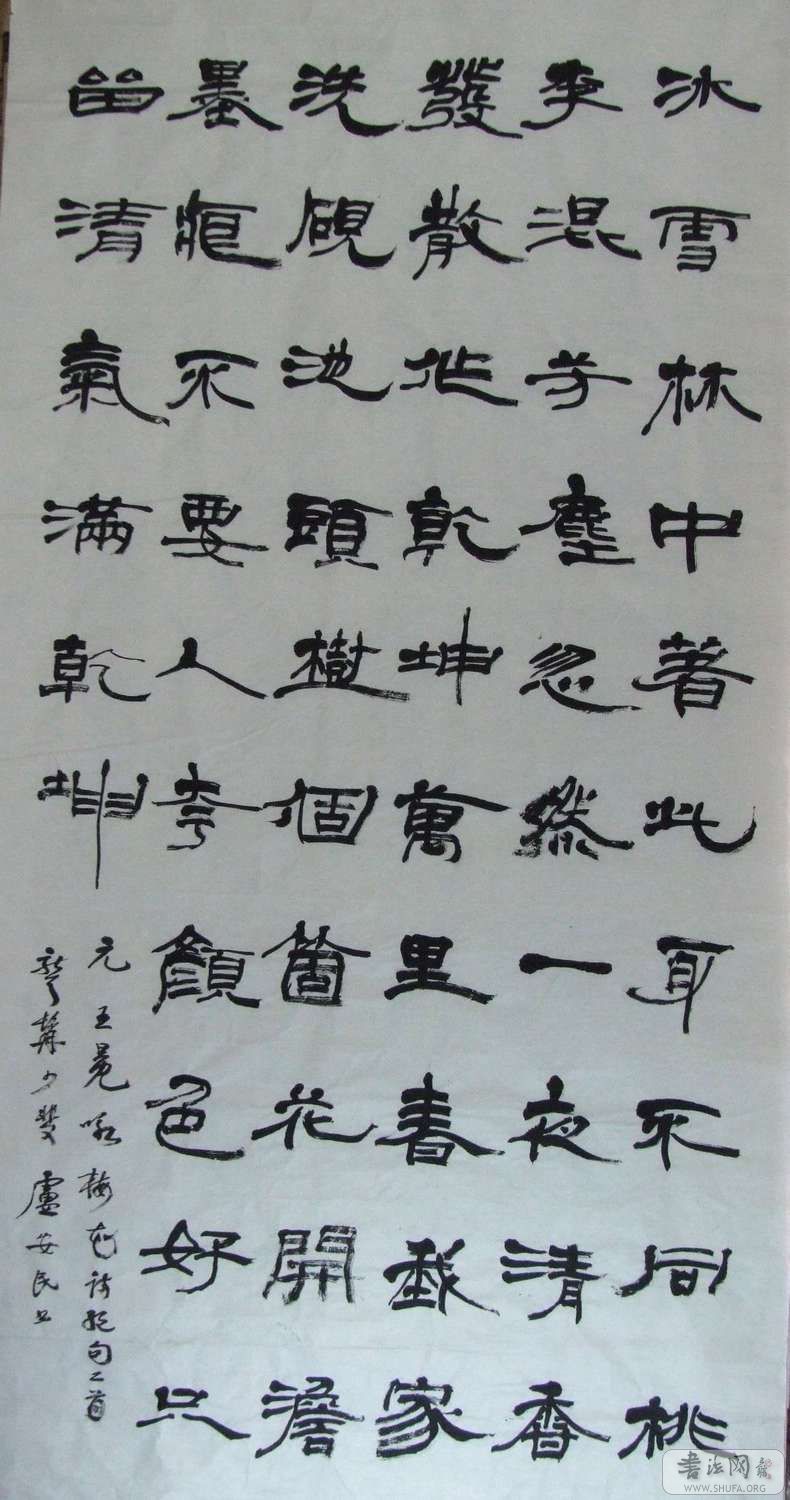 冰雪林中著此身不同桃
李混芳塵忽然一夜清香
發散作乾坤萬里春我家
洗硯池頭樹個箇花開澹
墨痕不要人夸顏色好只
留清氣滿乾坤
元王冕咏梅花詩絕句二首
盧安民书
書法网
WWW.SHUFA.ORG